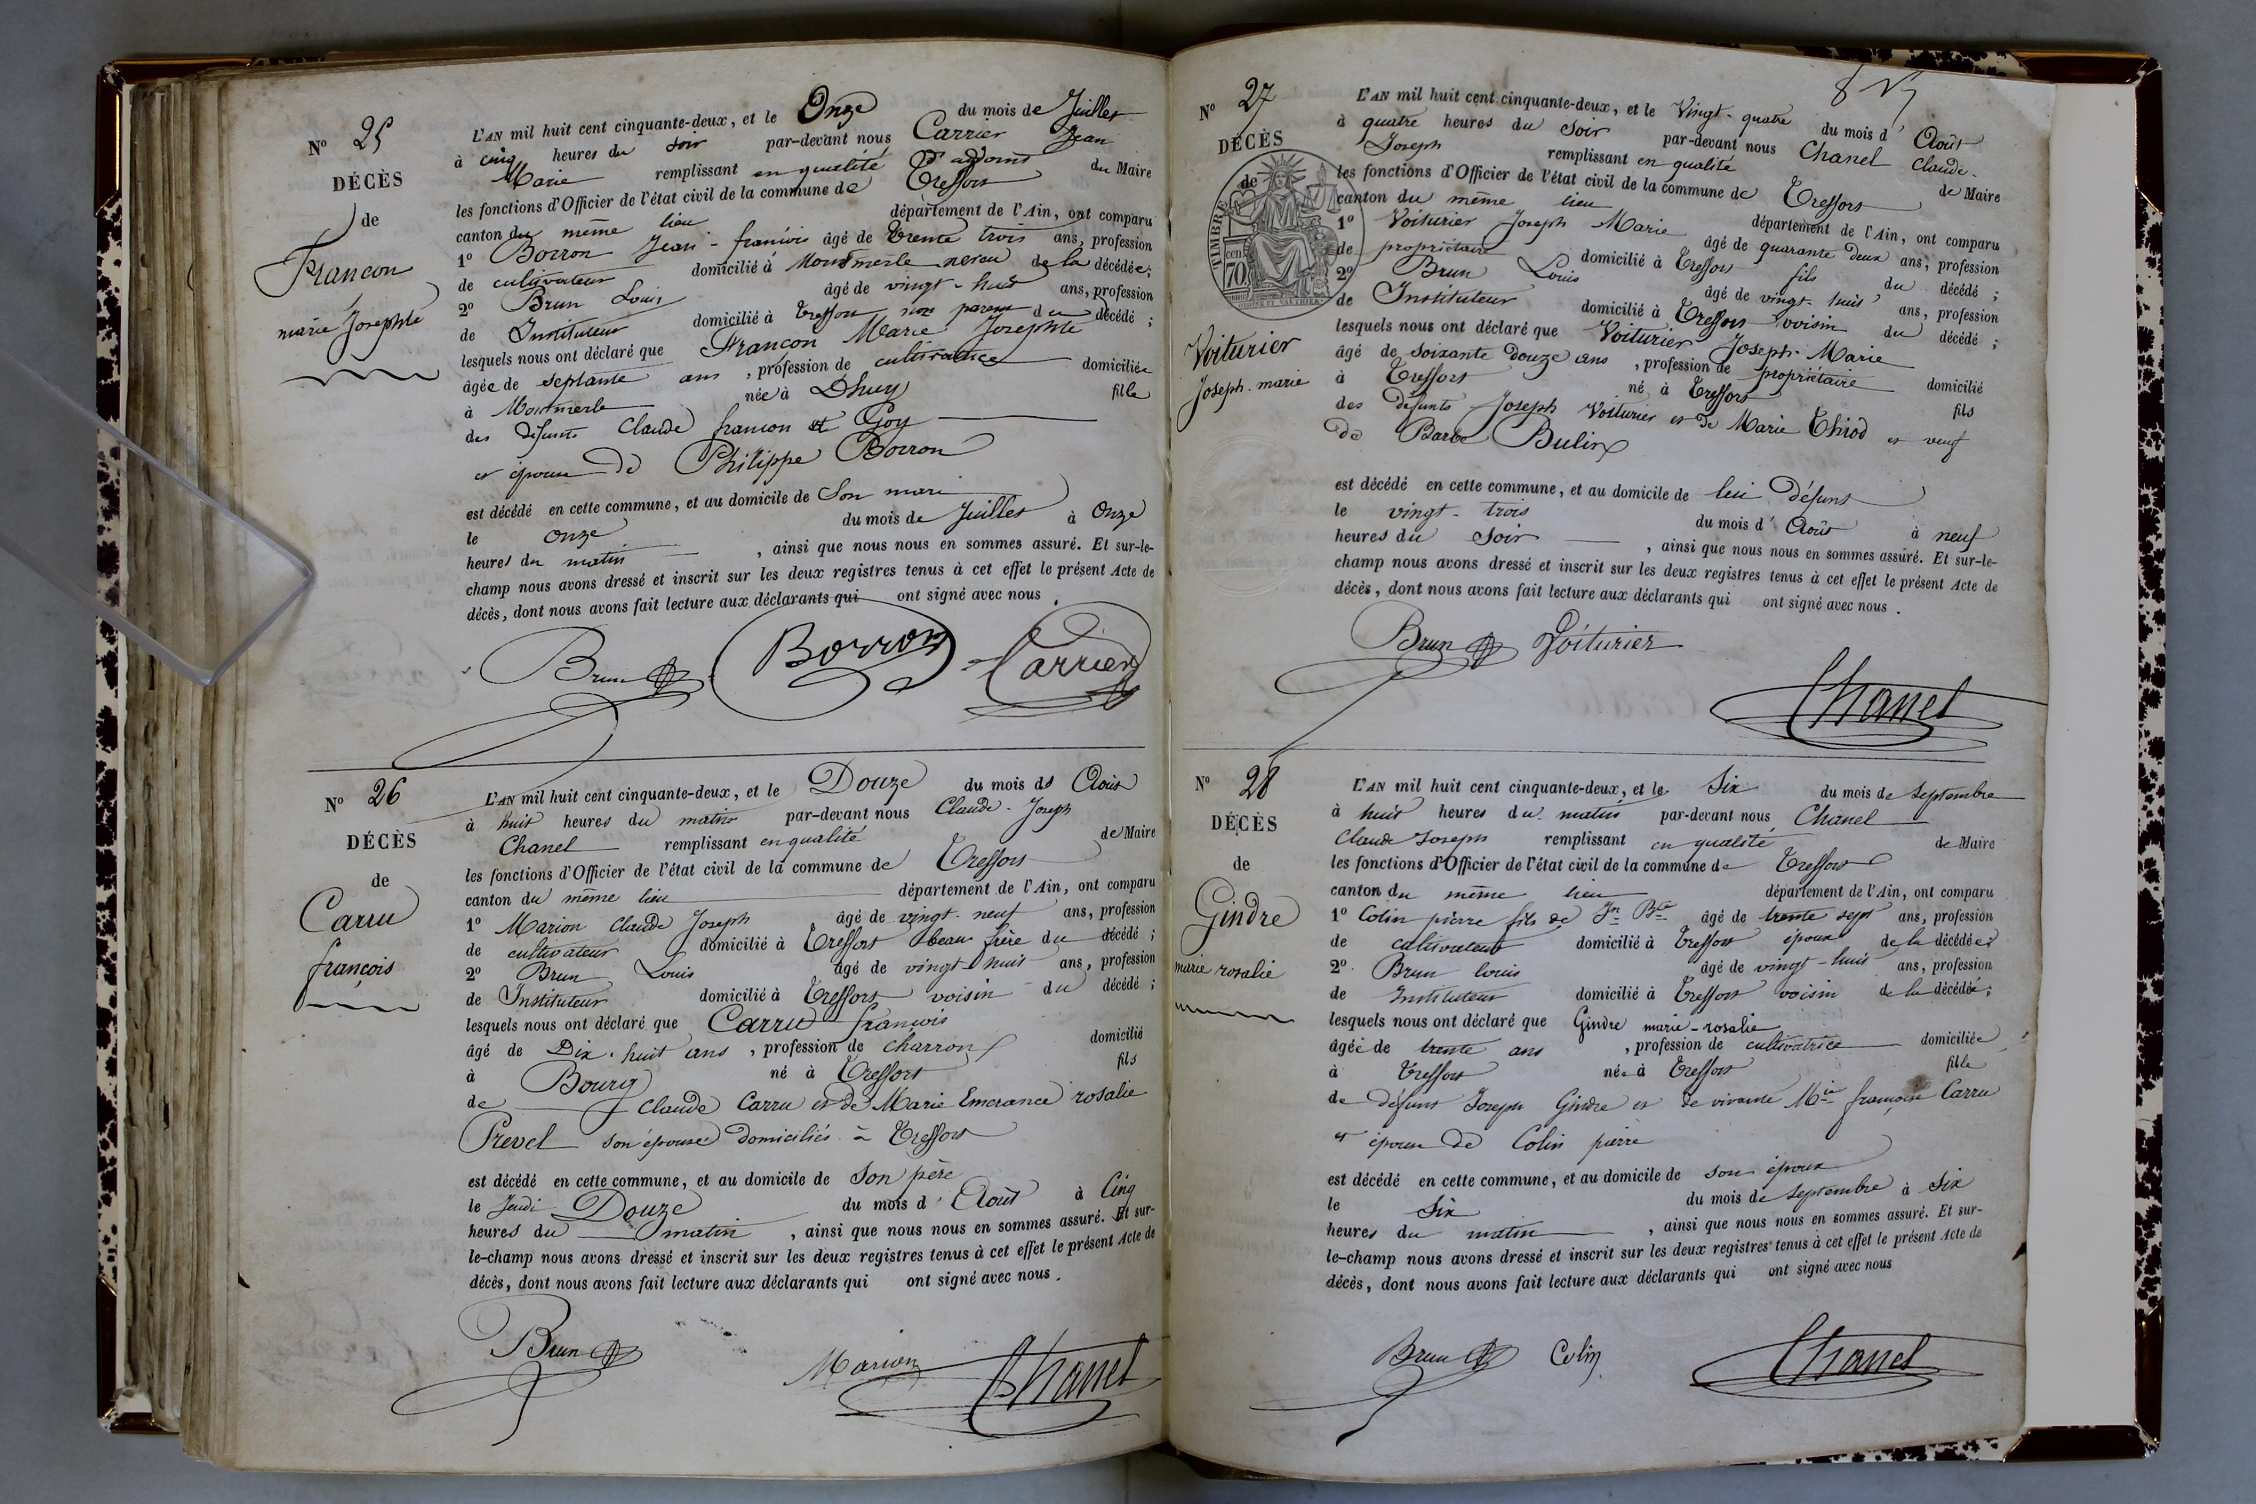 N° 25
DÉCÈS
de
Francon
marie Josephte
L'AN mil huit cent cinquante-deux, et le Onze du mois de Juillet
à cinq heures du soir par-devant nous Carrier Jean
Marie remplissant en qualité d'adjoint du Maire
les fonctions d'Officier de l'état civil de la commune de Treffort
canton du même lieu département de l'Ain, ont comparu
1° Borron Jean-françois âgé de trente trois ans, profession
de cultivateur domicilié à Montmerle neveu de la décédée;
2° Brun Louis âgé de vingt-huit ans, profession
de Instituteur domicilié à Treffort non parent du décédé;
lesquels nous ont déclaré que Francon Marie Josephte
âgée de septante ans, profession de cultivatrice domiciliée
à Montmerle née à Dhuy fille
des défunts Claude francon et Goy
et épouse de Philippe Borron
est décédé en cette commune, et au domicile de son mari
le onze du mois de Juillet à Onze
heures du matin, ainsi que nous nous en sommes assuré. Et sur-le-
champ nous avons dressé et inscrit sur les deux registres tenus à cet effet le présent Acte de
décès, dont nous avons fait lecture aux déclarants qui ont signé avec nous.
Brun Borron Carrier
N° 26
DÉCÈS
de
Carru
françois
L'AN mil huit cent cinquante-deux, et le Douze du mois d Août
à huit heures du matin par-devant nous Claude-Joseph
Chanel remplissant en qualité de Maire
les fonctions d'Officier de l'état civil de la commune de Treffort
canton du même lieu département de l'Ain, ont comparu
1° Marion Claude Joseph âgé de vingt-neuf ans, profession
de cultivateur domicilié à Treffort beau frère du décédé;
2° Brun Louis âgé de vingt-huit ans, profession
de Instituteur domicilié à Treffort voisin du décédé;
lesquels nous ont déclaré que Carru françois
âgé de Dix-huit ans, profession de charron domicilié
à Bourg né à Treffort fils
de Claude Carru et de Marie Emerance rosalie
Prevel son épouse domiciliés à Treffort
est décédé en cette commune, et au domicile de son père
le Jeudi Douze du mois d'Août à Cinq
heures du matin, ainsi que nous nous en sommes assuré. Et sur-
le-champ nous avons dressé et inscrit sur les deux registres tenus à cet effet le présent Acte de
décès, dont nous avons fait lecture aux déclarants qui ont signé avec nous.
Brun Marion Chanel
N° 27
DÉCÈS
de
TIMBRE
70
Voiturier
Joseph-marie
L'AN mil huit cent cinquante-deux, et le Vingt-quatre du mois d'Août
à quatre heures du soir par-devant nous Chanel Claude-
Joseph remplissant en qualité de Maire
les fonctions d'Officier de l'état civil de la commune de Treffort
canton du même lieu département de l'Ain, ont comparu
1° Voiturier Joseph Marie âgé de quarante deux ans, profession
de propriétaire domicilié à Treffort fils du décédé;
2° Brun Louis âgé de vingt-huit ans, profession
de Instituteur domicilié à Treffort voisin du décédé;
lesquels nous ont déclaré que Voiturier Joseph-Marie
âgé de soixante douze ans, profession de propriétaire domicilié
à Treffort né à Treffort fils
des défunts Joseph Voiturier et de Marie Thiod et veuf
de Barbe Bulin
est décédé en cette commune, et au domicile de lui défunt
le vingt-trois du mois d'Août à neuf
heures du soir, ainsi que nous nous en sommes assuré. Et sur-le-
champ nous avons dressé et inscrit sur les deux registres tenus à cet effet le présent Acte de
décès, dont nous avons fait lecture aux déclarants qui ont signé avec nous.
Brun Voiturier
Chanel
N° 28
DÉCÈS
de
Gindre
marie rosalie
L'AN mil huit cent cinquante-deux, et le Six du mois de Septembre
à huit heures du matin par-devant nous Chanel
Claude Joseph remplissant en qualité de Maire
les fonctions d'Officier de l'état civil de la commune de Treffort
canton du même lieu département de l'Ain, ont comparu
1° Colin pierre fils de Jn Bte âgé de trente sept ans, profession
de cultivateur domicilié à Treffort époux de la décédée
2° Brun louis âgé de vingt-huit ans, profession
de Instituteur domicilié à Treffort voisin de la décédée;
lesquels nous ont déclaré que Gindre marie-rosalie
âgée de trente ans, profession de cultivatrice domiciliée
à Treffort née à Treffort fille
de défunt Joseph Gindre et de vivante Mie françoise Carru
et épouse de Colin pierre
est décédé en cette commune, et au domicile de son époux
le Six du mois de Septembre à Six
heures du matin, ainsi que nous nous en sommes assuré. Et sur-
le-champ nous avons dressé et inscrit sur les deux registres tenus à cet effet le présent Acte de
décès, dont nous avons fait lecture aux déclarants qui ont signé avec nous
Brun Colin Chanel